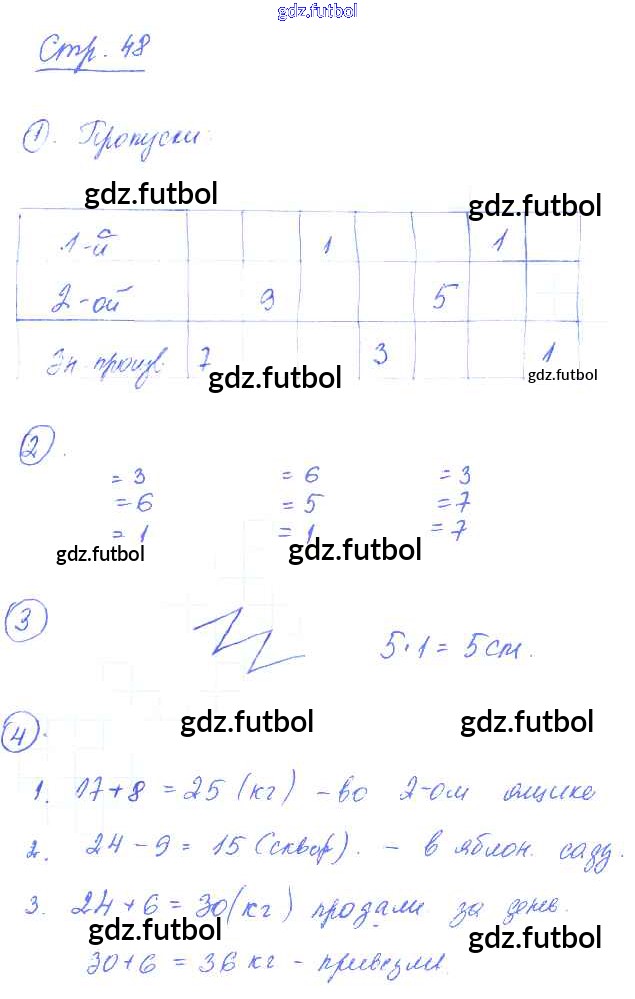 gdz.futbol
Стр. 48
1. Пропуски:
gdz.futbol gdz.futbol
1-й 1 1
2-ой 9 5
Зн. произв. 7 3 1
gdz.futbol gdz.futbol
2.
= 3 = 6 = 3
= 6 = 5 = 7
= 1 = 1 = 7
gdz.futbol gdz.futbol
3 5·1 = 5см.
gdz.futbol gdz.futbol
4.
1. 17+8 = 25 (кг) – во 2-ом ящике
2. 24 – 9 = 15 (сквор). – в яблон. саду.
3. 24 + 6 = 30 (кг) продали за день.
gdz.futbol gdz.futbol
30+6 = 36 кг – привезли.